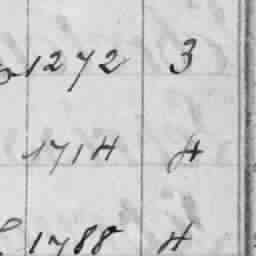 1272 3
1714 4
1788 4